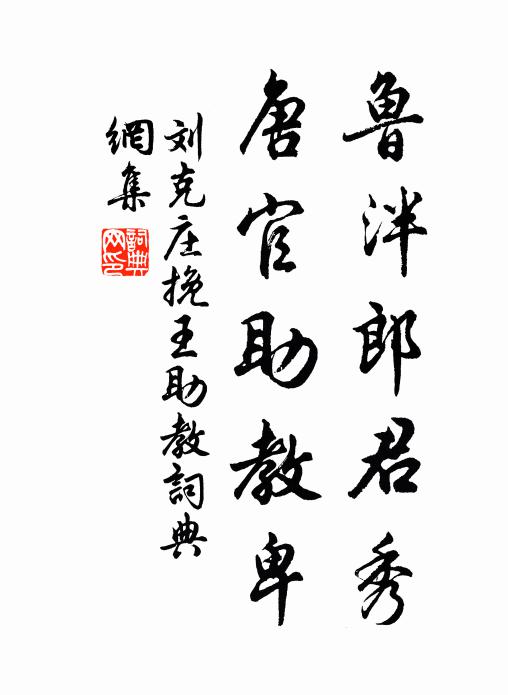 魯泮郎君秀
唐官助教卑
刘克庄挽王助教詞典
網集
詞典網印